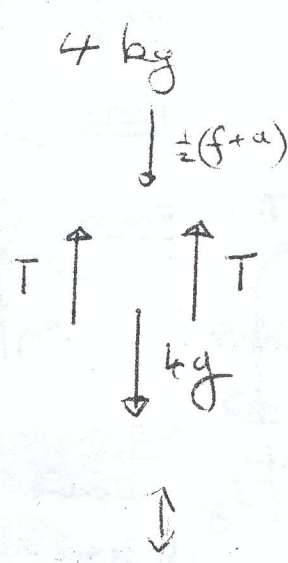 4 kg
½(f+a)
T T
4g